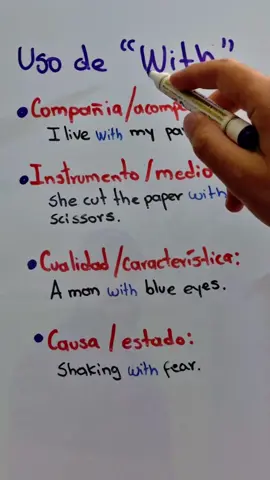 Uso de "With"
• Compañia/acomp
I live with my pa
• Instrumento/medio
She cut the paper with
scissors.
• Cualidad/característica:
A man with blue eyes.
• Causa/estado:
Shaking with fear.